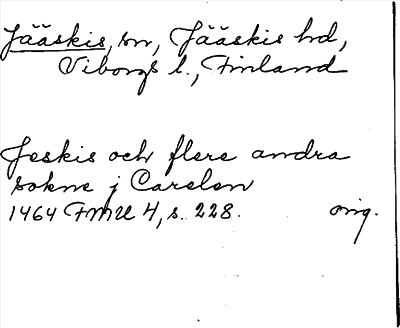 Jääskis, sn, Jääskis hd,
Viborgs l., Finland
Jeskis och flere andra
sokne j Carelen
1464 FMU 4, s. 228. orig.